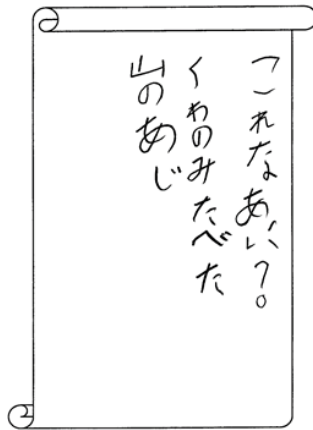 これなあに?。
くわのみたべた
山のあじ